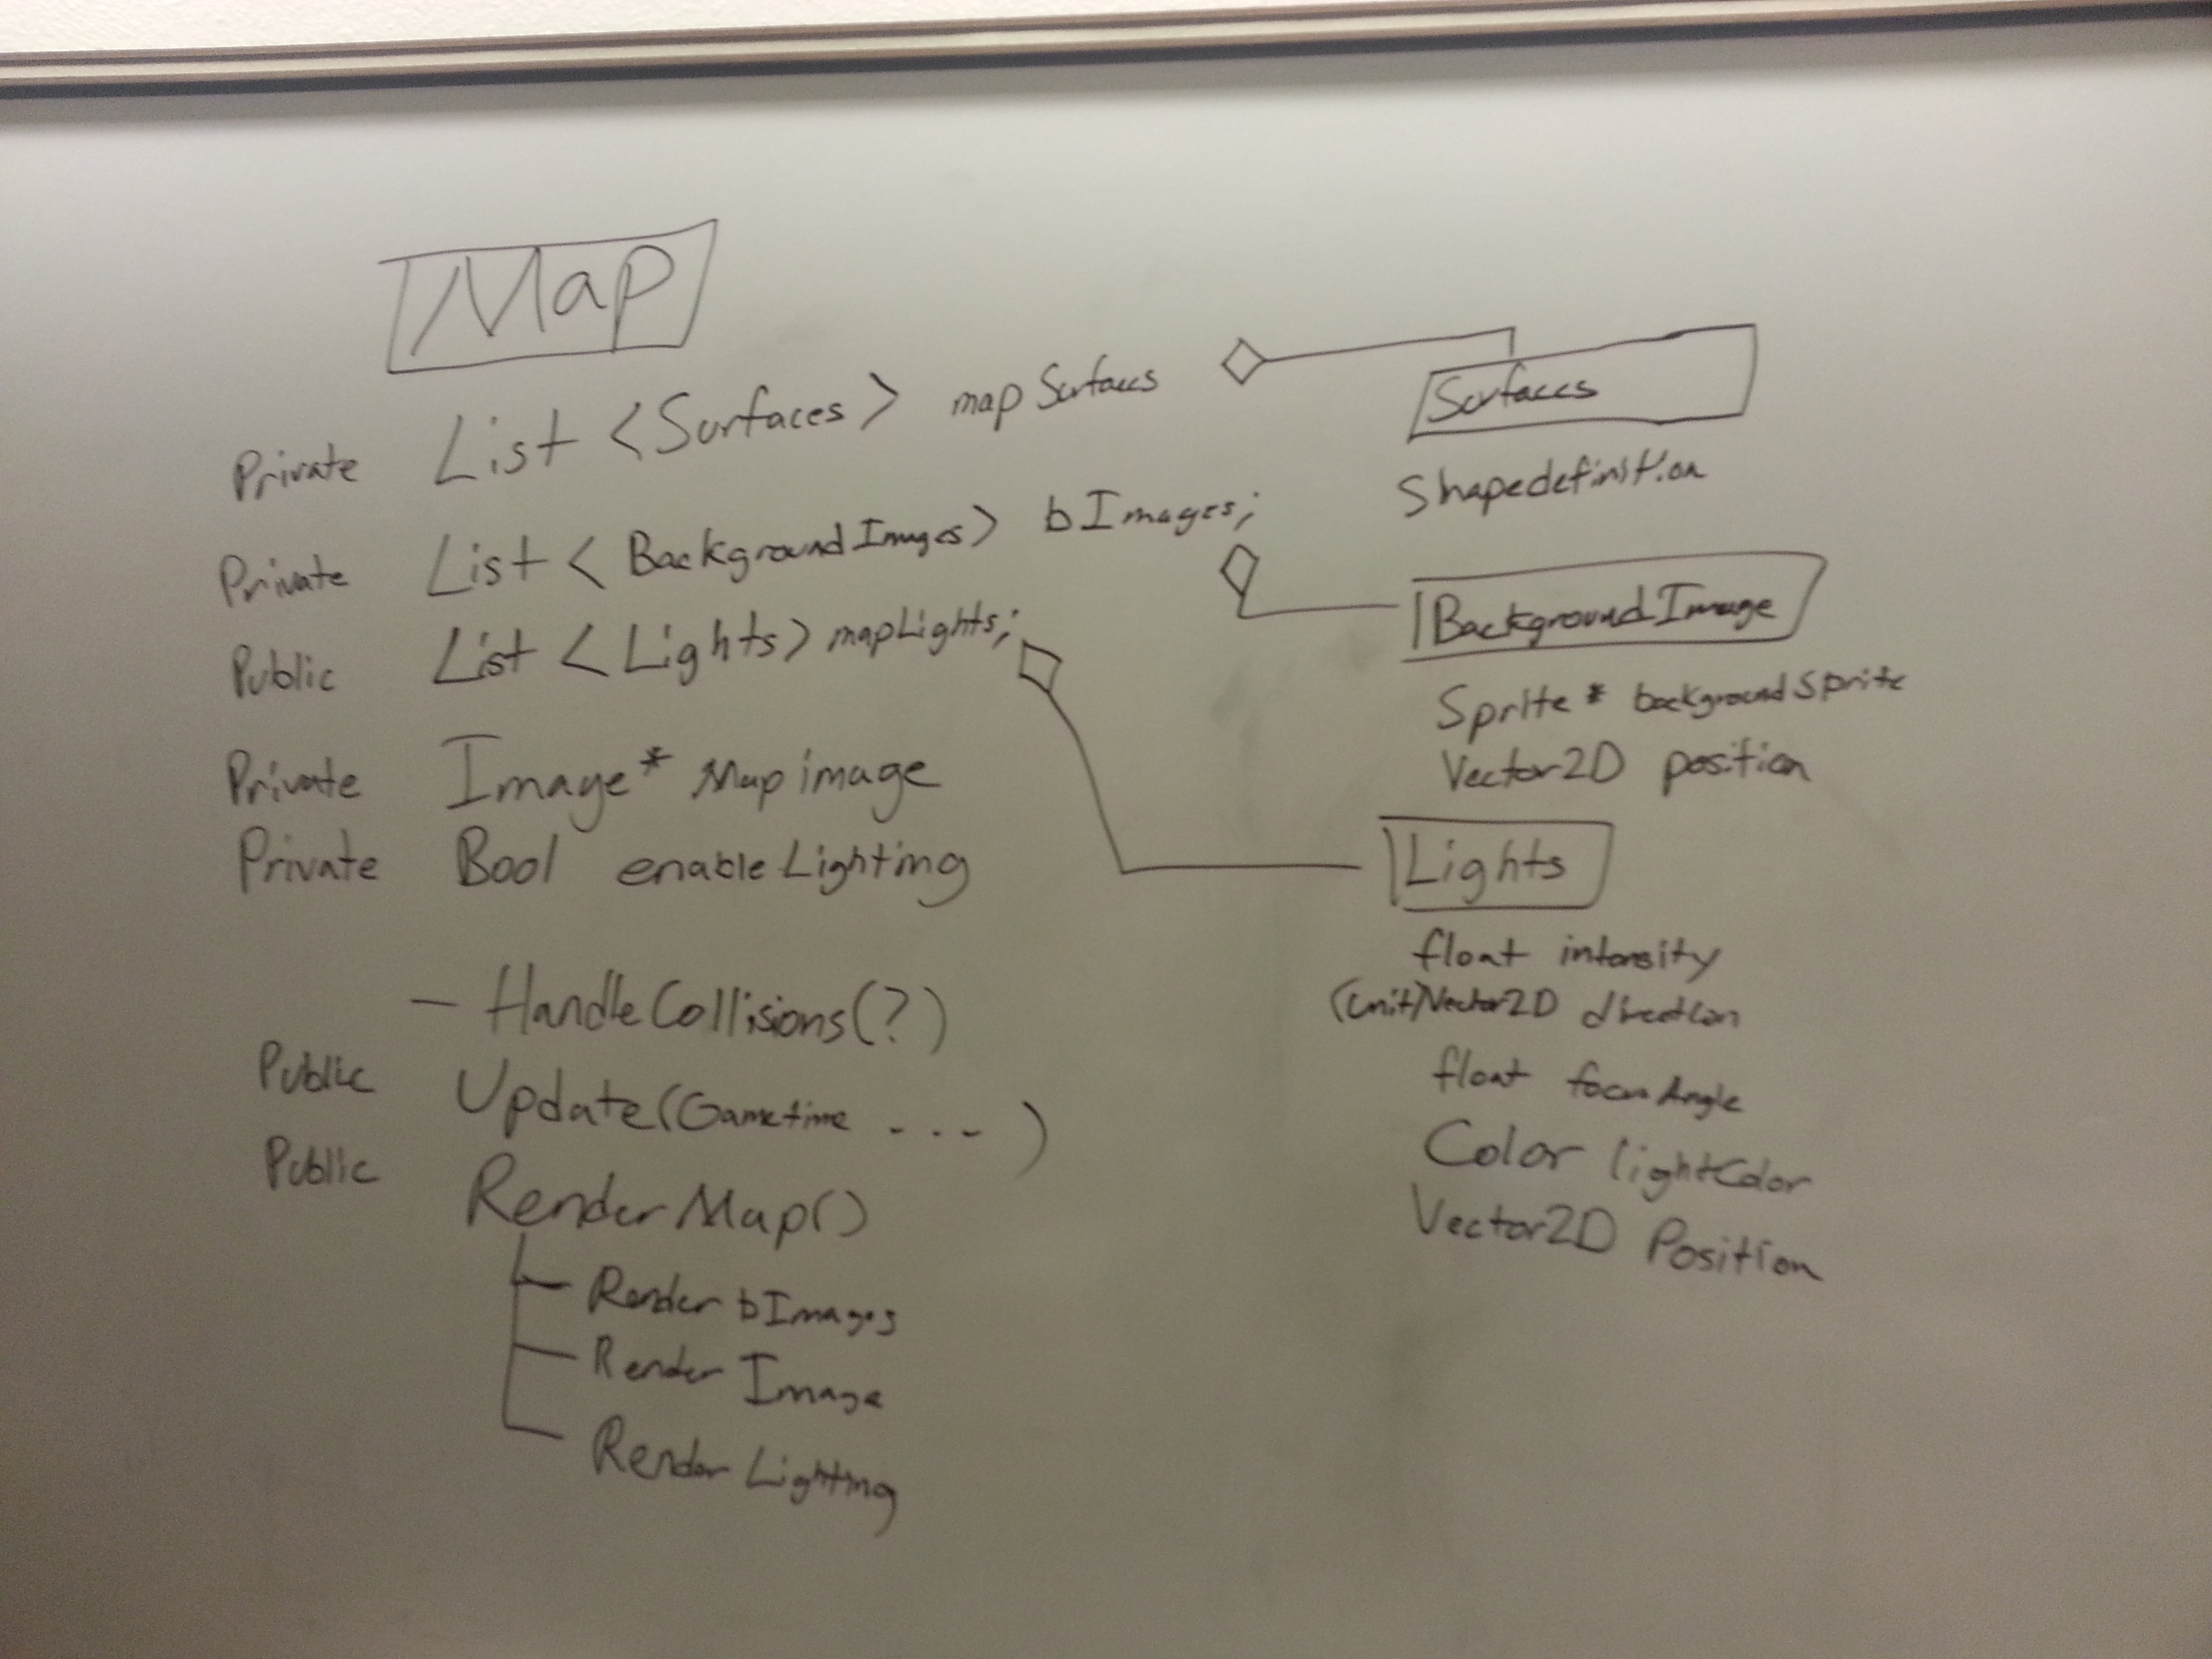 Map
Private List <Surfaces> mapSurfaces
Private List < BackgroundImages> bImages;
Public List <Lights> mapLights;
Private Image* Mapimage
Private Bool enableLighting
- HandleCollisions(?)
Public Update(Gametime ... )
Public RenderMap()
Render bImages
Render Image
Render Lighting
Surfaces
Shapedefinition
BackgroundImage
Sprite * backgroundSprite
Vector2D position
Lights
float intensity
(unit)Vector2D direction
float focusAngle
Color lightColor
Vector2D Position